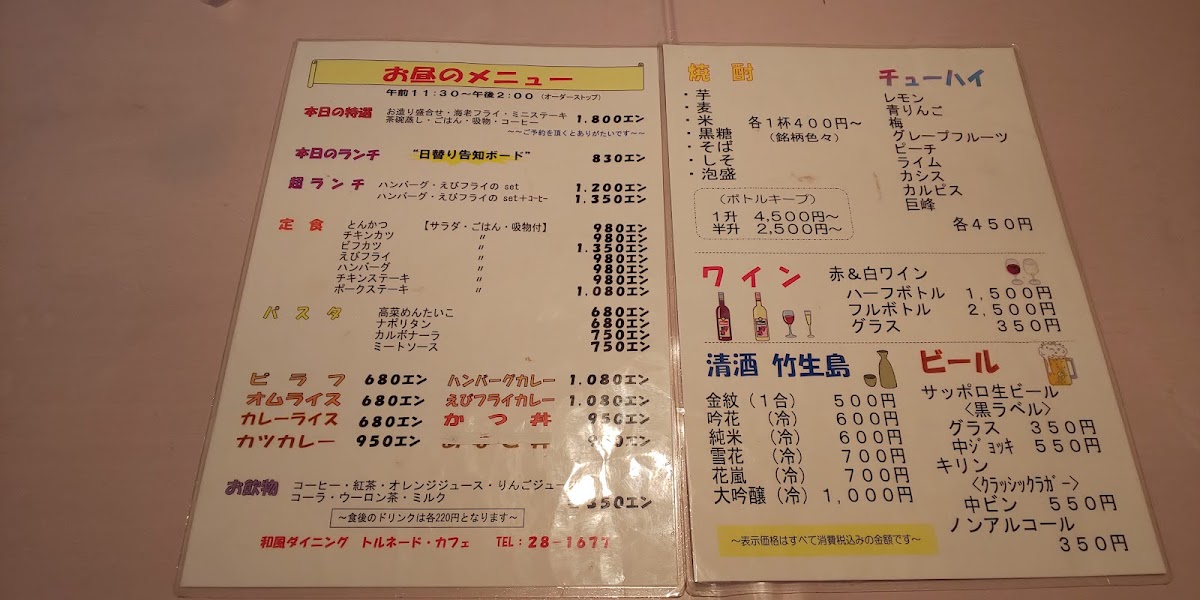 お昼のメニュー
午前11:30～午後2:00（オーダーストップ）
本日の特選 お造り盛合せ・海老フライ・ミニステーキ
茶碗蒸し・ごはん・吸物・コーヒー 1.800エン
～～ご予約を頂くとありがたいです～～
本日のランチ "日替り告知ボード" 830エン
超ランチ ハンバーグ・えびフライの set 1.200エン
ハンバーグ・えびフライの set＋ｺｰﾋｰ 1.350エン
定食 とんかつ 【サラダ・ごはん・吸物付】 980エン
チキンカツ 〃 980エン
ビフカツ 〃 1.350エン
えびフライ 〃 980エン
ハンバーグ 〃 980エン
チキンステーキ 〃 980エン
ポークステーキ 〃 1.080エン
パスタ 高菜めんたいこ 680エン
ナポリタン 680エン
カルボナーラ 750エン
ミートソース 750エン
ピラフ 680エン ハンバーグカレー 1.080エン
オムライス 680エン えびフライカレー 1.080エン
カレーライス 680エン かつ丼 950エン
カツカレー 950エン
お飲物 コーヒー・紅茶・オレンジジュース・りんごジュー
コーラ・ウーロン茶・ミルク 350エン
～食後のドリンクは各220円となります～
和風ダイニング トルネード・カフェ TEL：28-1677
焼酎
・芋
・麦
・米
・黒糖
・そば
・しそ
・泡盛
各1杯400円～
（銘柄色々）
（ボトルキープ）
1升 4,500円～
半升 2,500円～
チューハイ
レモン
青りんご
梅
グレープフルーツ
ピーチ
ライム
カシス
カルピス
巨峰
各450円
ワイン 赤＆白ワイン
ハーフボトル 1,500円
フルボトル 2,500円
グラス 350円
清酒 竹生島
金紋（1合） 500円
吟花 （冷） 600円
純米 （冷） 600円
雪花 （冷） 700円
花嵐 （冷） 700円
大吟醸（冷） 1,000円
～表示価格はすべて消費税込みの金額です～
ビール
サッポロ生ビール
〈黒ラベル〉
グラス 350円
中ジョッキ 550円
キリン
〈クラッシックラガー〉
中ビン 550円
ノンアルコール
350円